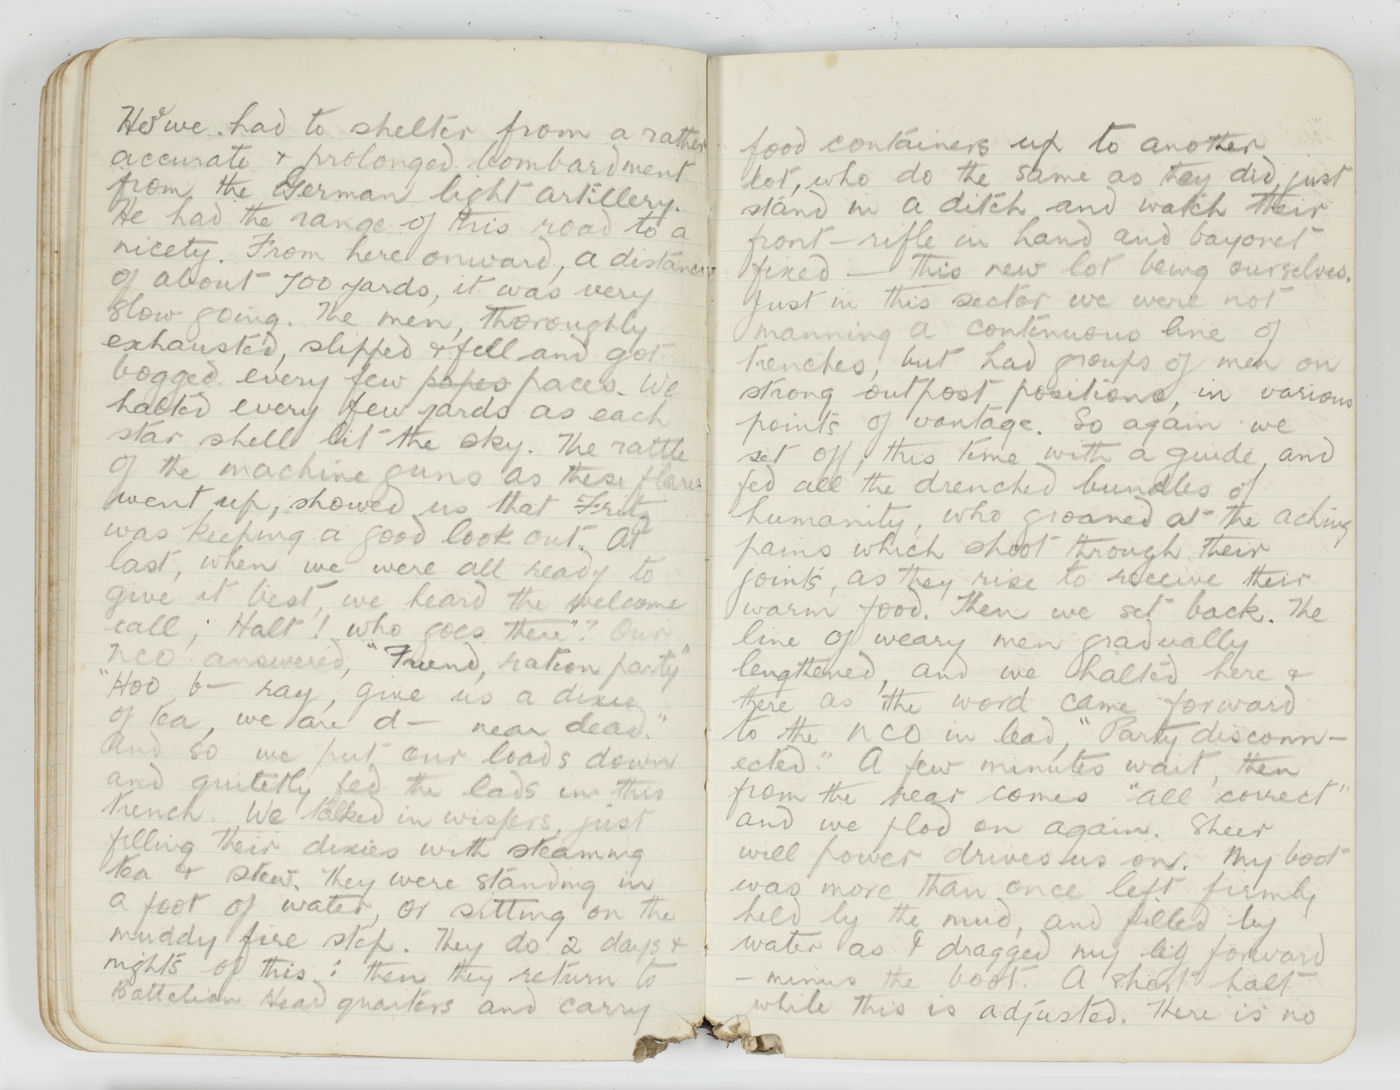 Here we had to shelter from a rather
accurate & prolonged bombardment
from the German light artillery.
He had the range of this road to a
nicety. From here onward, a distance
of about 700 yards, it was very
slow going. The men, thoroughly
exhausted, slipped & fell and got
bogged every few papes paces. We
halted every few yards as each
star shell lit the sky. The rattle
of the machine guns as these flares
went up, showed us that Fritz
was keeping a good look out. At
last, when we were all ready to
give it best, we heard the welcome
call; Halt! who goes there"? Our
NCO answered, "Friend, ration party"
"Hoo b— ray, give us a dixie
of tea, we are d— near dead."
And so we put our loads down
and quitetly fed the lads in this
trench. We talked in wispers, just
filling their dixies with steaming
tea & stew. They were standing in
a foot of water, or sitting on the
muddy fire step. They do 2 days &
nights of this: then they return to
Battalion Head quarters and carry
food containers up to another
lot, who do the same as they did, just
stand in a ditch and watch their
front – rifle in hand and bayonet
fixed — this new lot being ourselves.
Just in this sector we were not
manning a continuous line of
trenches, but had groups of men on
strong outpost positions, in various
points of vantage. So again we
set off, this time with a guide, and
fed all the drenched bundles of
humanity, who groaned at the aching
pains which shoot through their
joints, as they rise to receive their
warm food. Then we set back. The
line of weary men gradually
lengthened, and we halted here &
there as the word came forward
to the NCO in lead, "Party disconn-
ected." A few minutes wait, then
from the rear comes "all correct"
and we plod on again. Sheer
will power drives us on. My boot
was more than once left firmly
held by the mud, and filled by
water as I dragged my leg forward
– minus the boot. A short halt
while this is adjusted. There is no